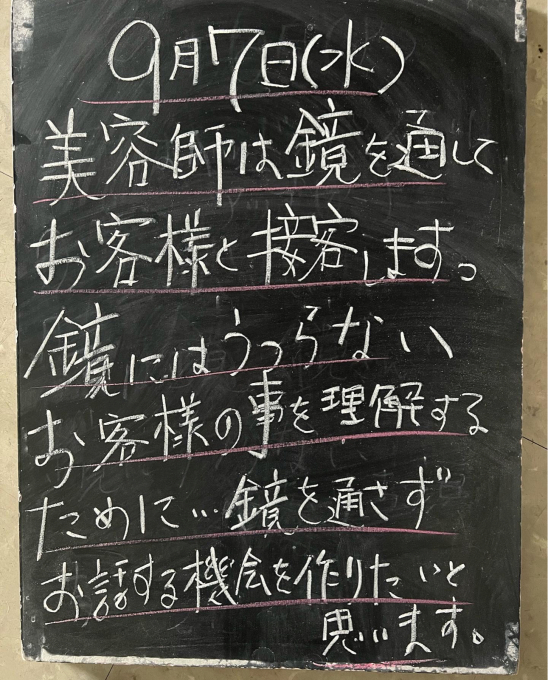 9月7日(水)
美容師は鏡を通して
お客様と接客します。
鏡にはうつらない
お客様の事を理解する
ために…鏡を通さず
お話する機会を作りたいと
思います。